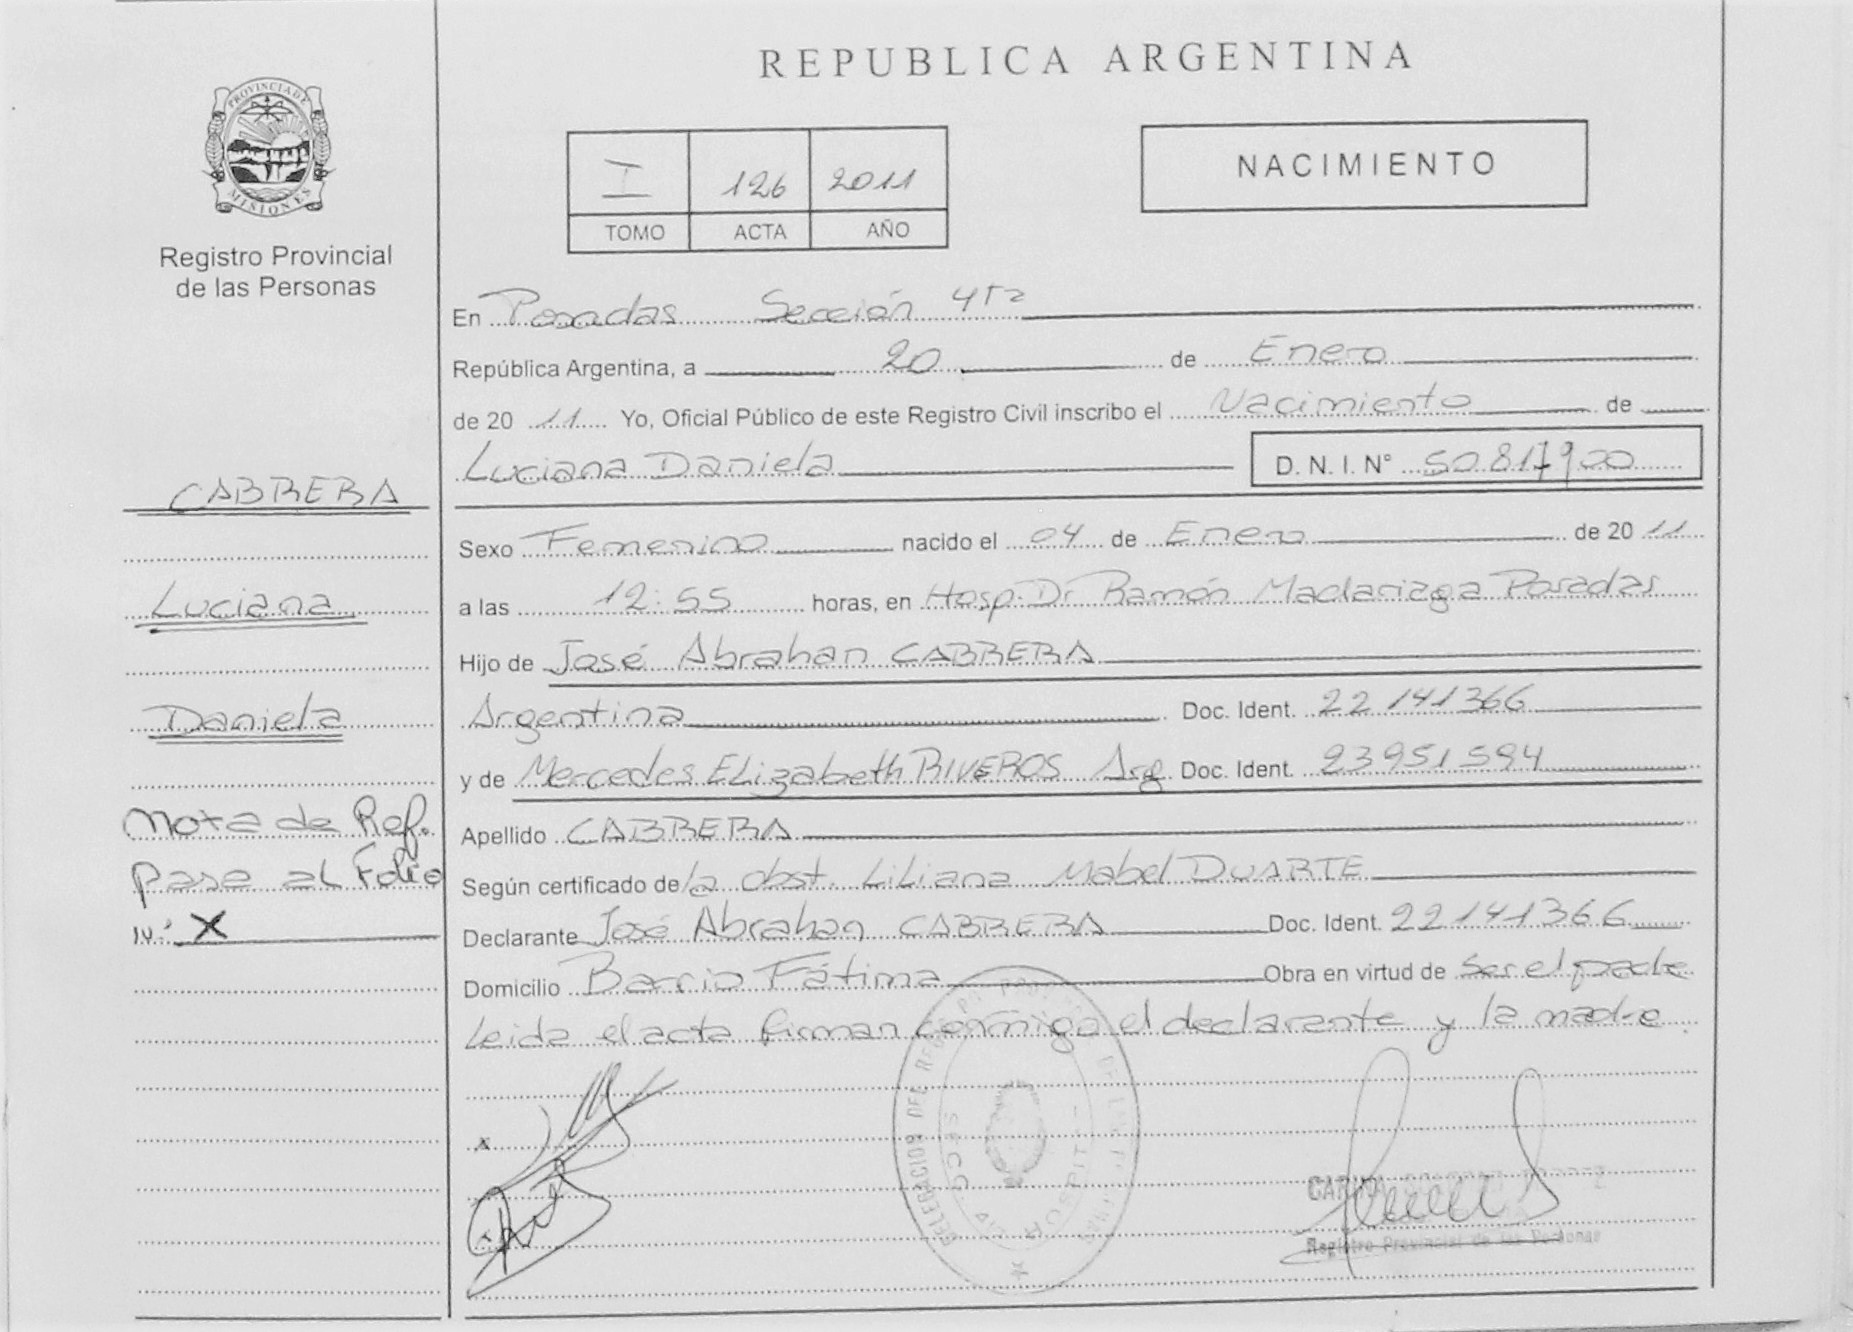 REPUBLICA ARGENTINA
PROVINCIA DE
MISIONES
Registro Provincial
de las Personas
I 126 2011
TOMO ACTA AÑO
NACIMIENTO
En Posadas Sección 4ta
República Argentina, a 20 de Enero
de 20 11 Yo, Oficial Público de este Registro Civil inscribo el Nacimiento de
Luciana Daniela D. N. I. N° 50.817.900
CABRERA
Luciana
Daniela
Nota de Ref.
pase al Folio
N° X
Sexo Femenino nacido el 04 de Enero de 20 11
a las 12:55 horas, en Hosp. Dr Ramón Madariaga Posadas
Hijo de José Abrahan CABRERA
Argentina Doc. Ident. 22141366
y de Mercedes ELizabeth RIVEROS Arg Doc. Ident. 23951594
Apellido CABRERA
Según certificado de la obst. LiLiana Mabel DUARTE
Declarante José Abrahan CABRERA Doc. Ident. 22141366
Domicilio Barrio Fátima Obra en virtud de ser el padre
Leida el acta firman conmigo el declarante y la madre.
x
x
DELEGACION DEL
SECC 4ta
HOSPITAL
CARINA
Registro Provincial de las Personas